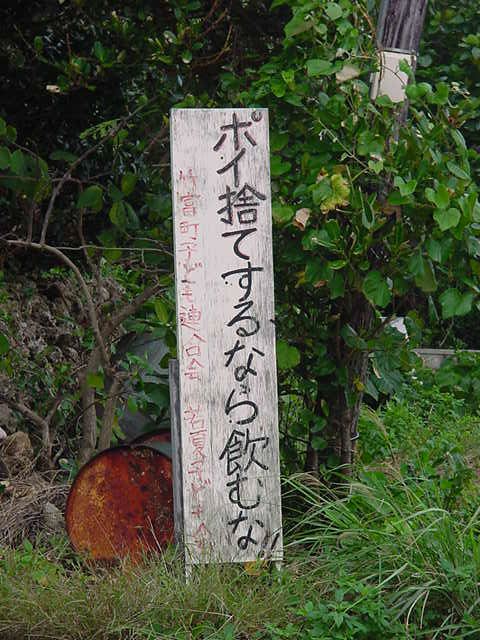 ポイ捨てするなら飲むな!!
竹富町子ども連合会 若夏子ども会